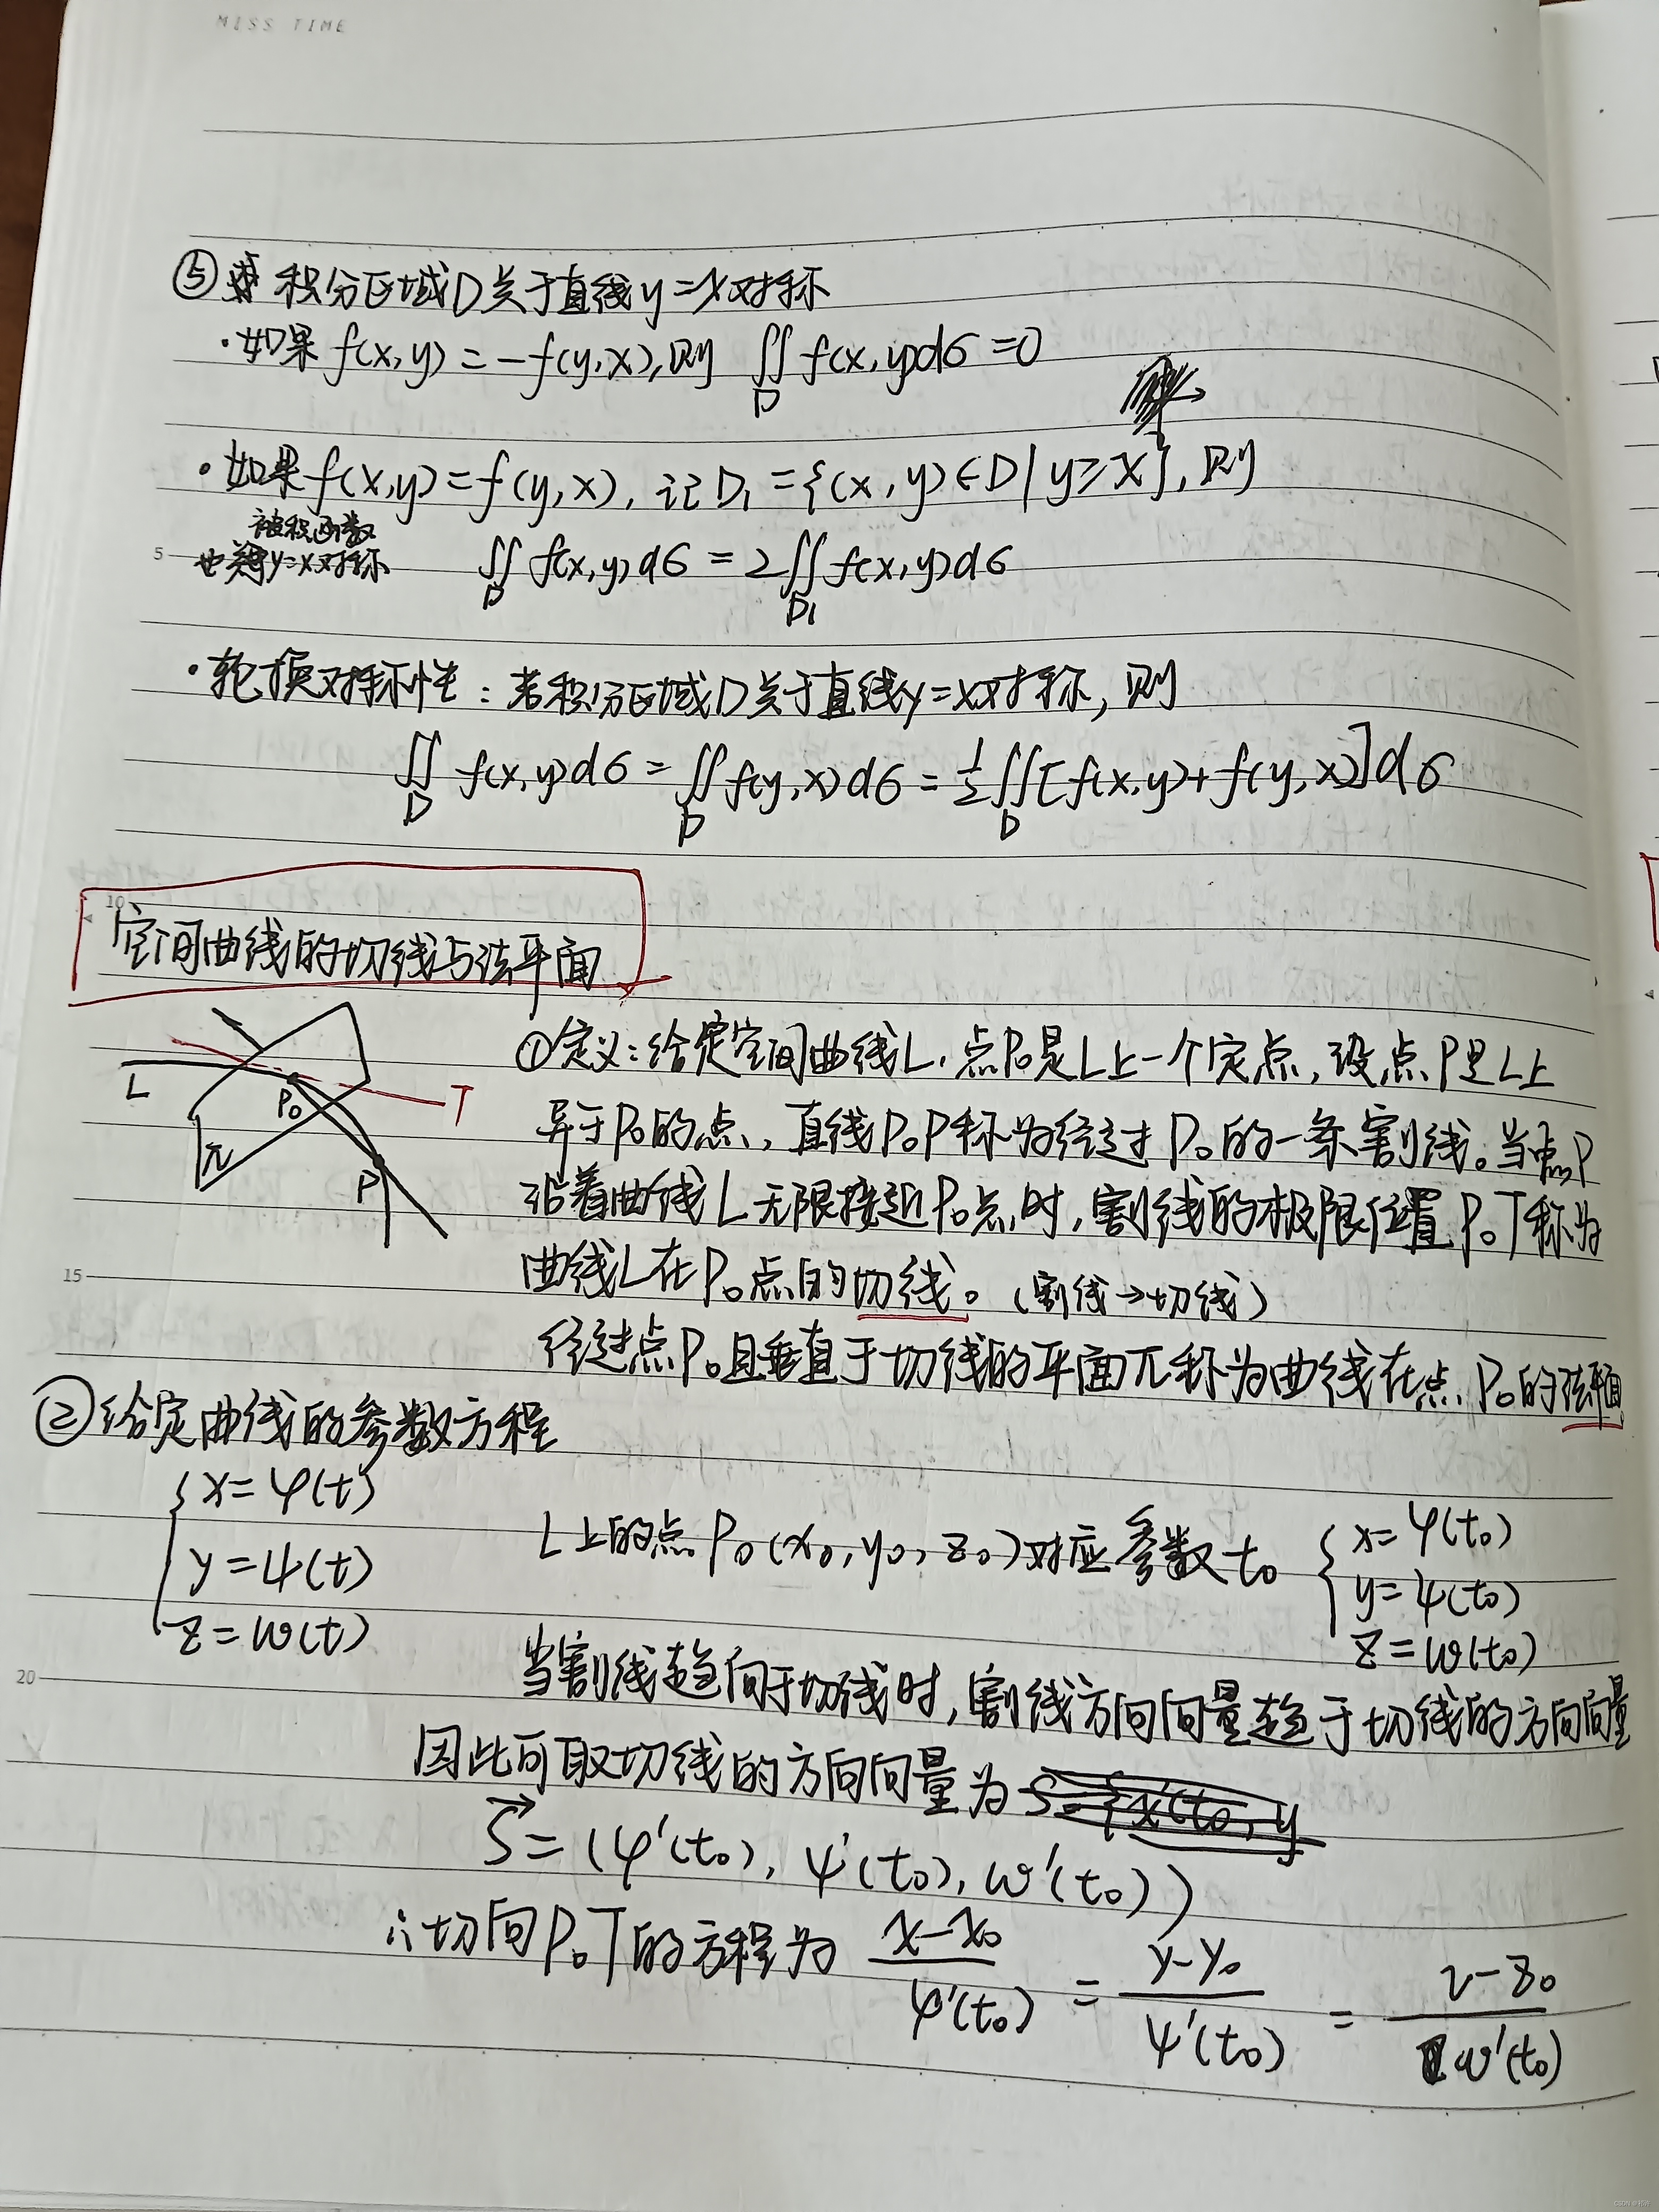 MISS TIME
⑤ 积分区域D关于直线y=x对称
·如果 f(x,y)=-f(y,x),则 ∬_D f(x,y)dσ=0
·如果f(x,y)=f(y,x), 记D₁={(x,y)∈D|y≥x},则
被积函数
也关于y=x对称
5
∬_D f(x,y)dσ=2∬_D₁ f(x,y)dσ
·轮换对称性:若积分区域D关于直线y=x对称,则
∬_D f(x,y)dσ=∬_D f(y,x)dσ=½∬_D[f(x,y)+f(y,x)]dσ
10
空间曲线的切线与法平面
L
P₀
T
π
P
①定义:给定空间曲线L,点P₀是L上一个定点,设点P是L上
异于P₀的点,直线P₀P称为经过P₀的一条割线。当点P
沿着曲线L无限接近P₀点时,割线的极限位置P₀T称为
15
曲线L在P₀点的切线。(割线→切线)
经过点P₀且垂直于切线的平面π称为曲线在点P₀的法平面。
②给定曲线的参数方程
{x=φ(t)
y=ψ(t)
z=w(t)
L上的点P₀(x₀,y₀,z₀)对应参数t₀
{x=φ(t₀)
y=ψ(t₀)
z=w(t₀)
20
当割线趋向于切线时,割线方向向量趋于切线的方向向量
因此可取切线的方向向量为
S⃗=(φ'(t₀),ψ'(t₀),w'(t₀))
∴切向P₀T的方程为 (x-x₀)/φ'(t₀) = (y-y₀)/ψ'(t₀) = (z-z₀)/w'(t₀)